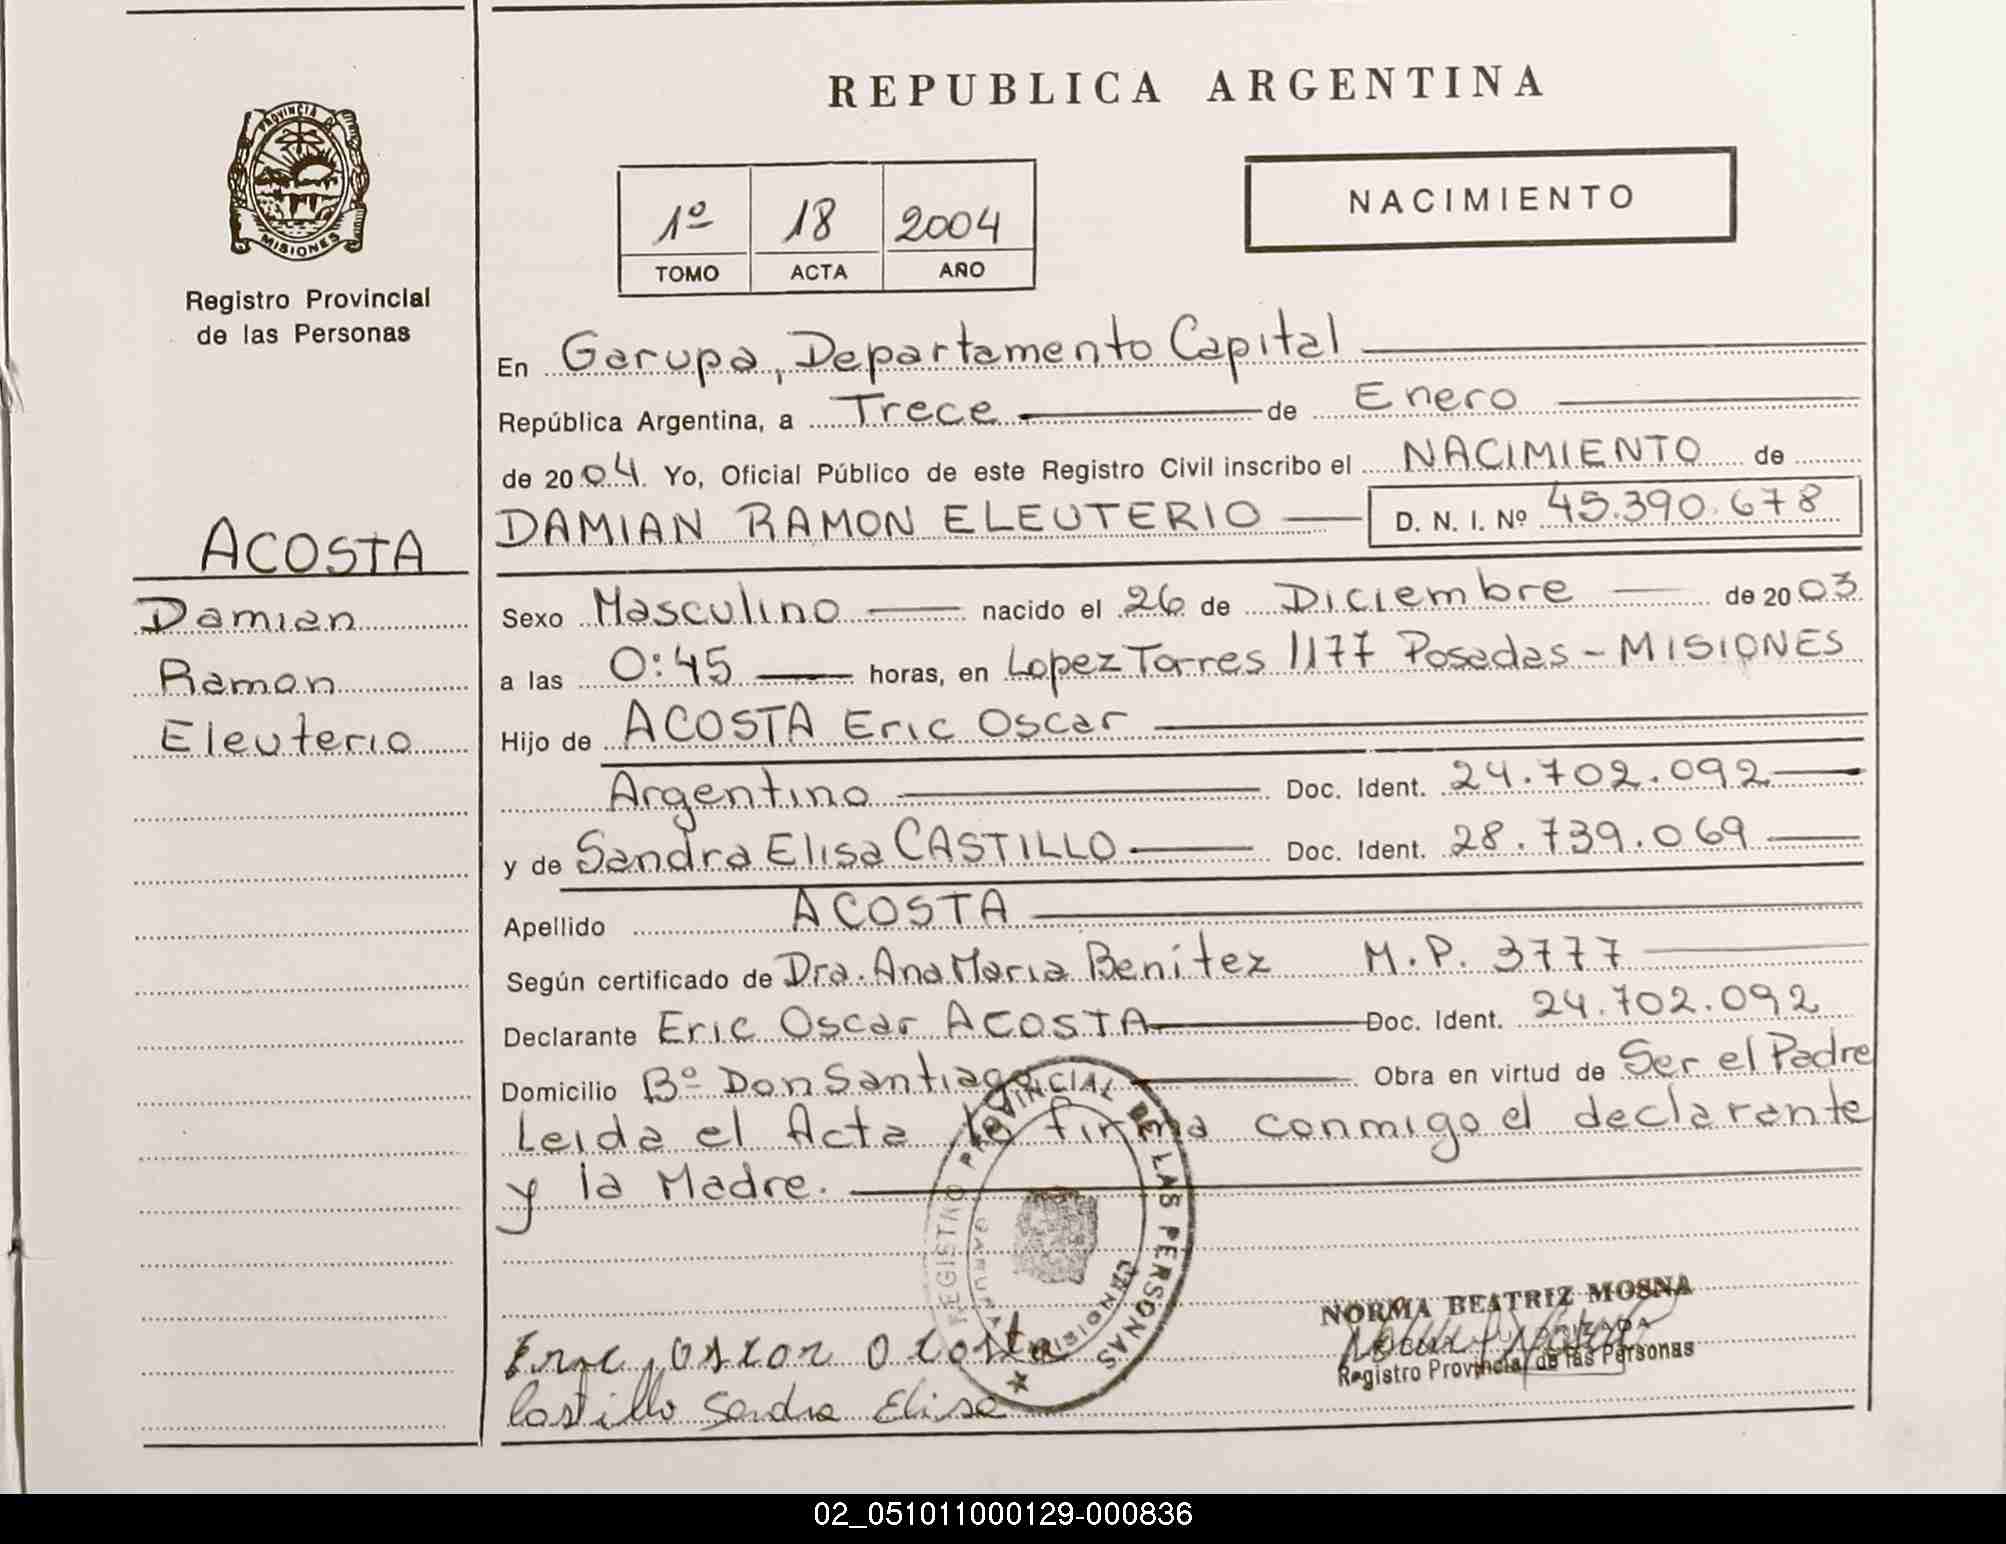 REPUBLICA ARGENTINA
PROVINCIA DE
MISIONES
Registro Provincial
de las Personas
1º 18 2004
TOMO ACTA AÑO
NACIMIENTO
En Garupa, Departamento Capital
República Argentina, a Trece de Enero
de 2004. Yo, Oficial Público de este Registro Civil inscribo el NACIMIENTO de
DAMIAN RAMON ELEUTERIO D. N. I. Nº 45.390.678
ACOSTA
Damian
Ramon
Eleuterio
Sexo Masculino nacido el 26 de Diciembre de 2003
a las 0:45 horas, en Lopez Torres 1177 Posadas - MISIONES
Hijo de ACOSTA Eric Oscar
Argentino Doc. Ident. 24.702.092
y de Sandra Elisa CASTILLO Doc. Ident. 28.739.069
Apellido ACOSTA
Según certificado de Dra. Ana Maria Benítez M.P. 3777
Declarante Eric Oscar ACOSTA Doc. Ident. 24.702.092
Domicilio Bº Don Santiago Obra en virtud de Ser el Padre
Leida el Acta la firma conmigo el declarante
y la Madre.
REGISTRO PROVINCIAL DE LAS PERSONAS
GARUPA
NORMA BEATRIZ MOSNA
Registro Provincial de las Personas
Eric oscar acosta
Castillo Sandra Elisa
02_051011000129-000836